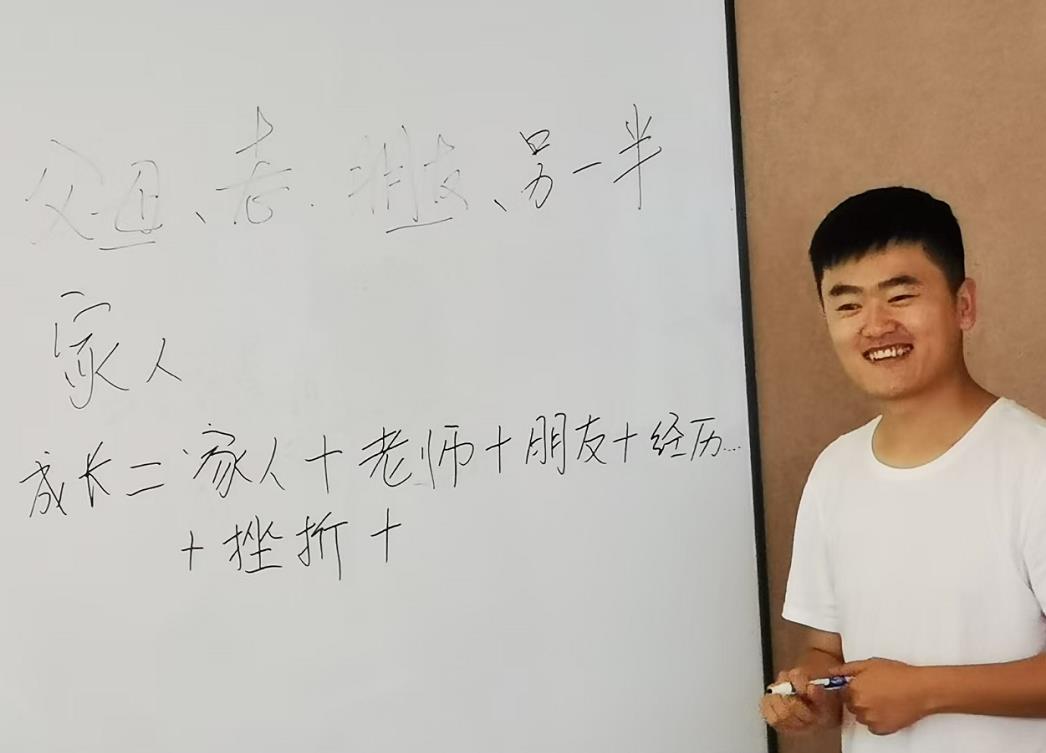 父母、老 朋友、另一半
家人
成长=家人+老师+朋友+经历...
+挫折+